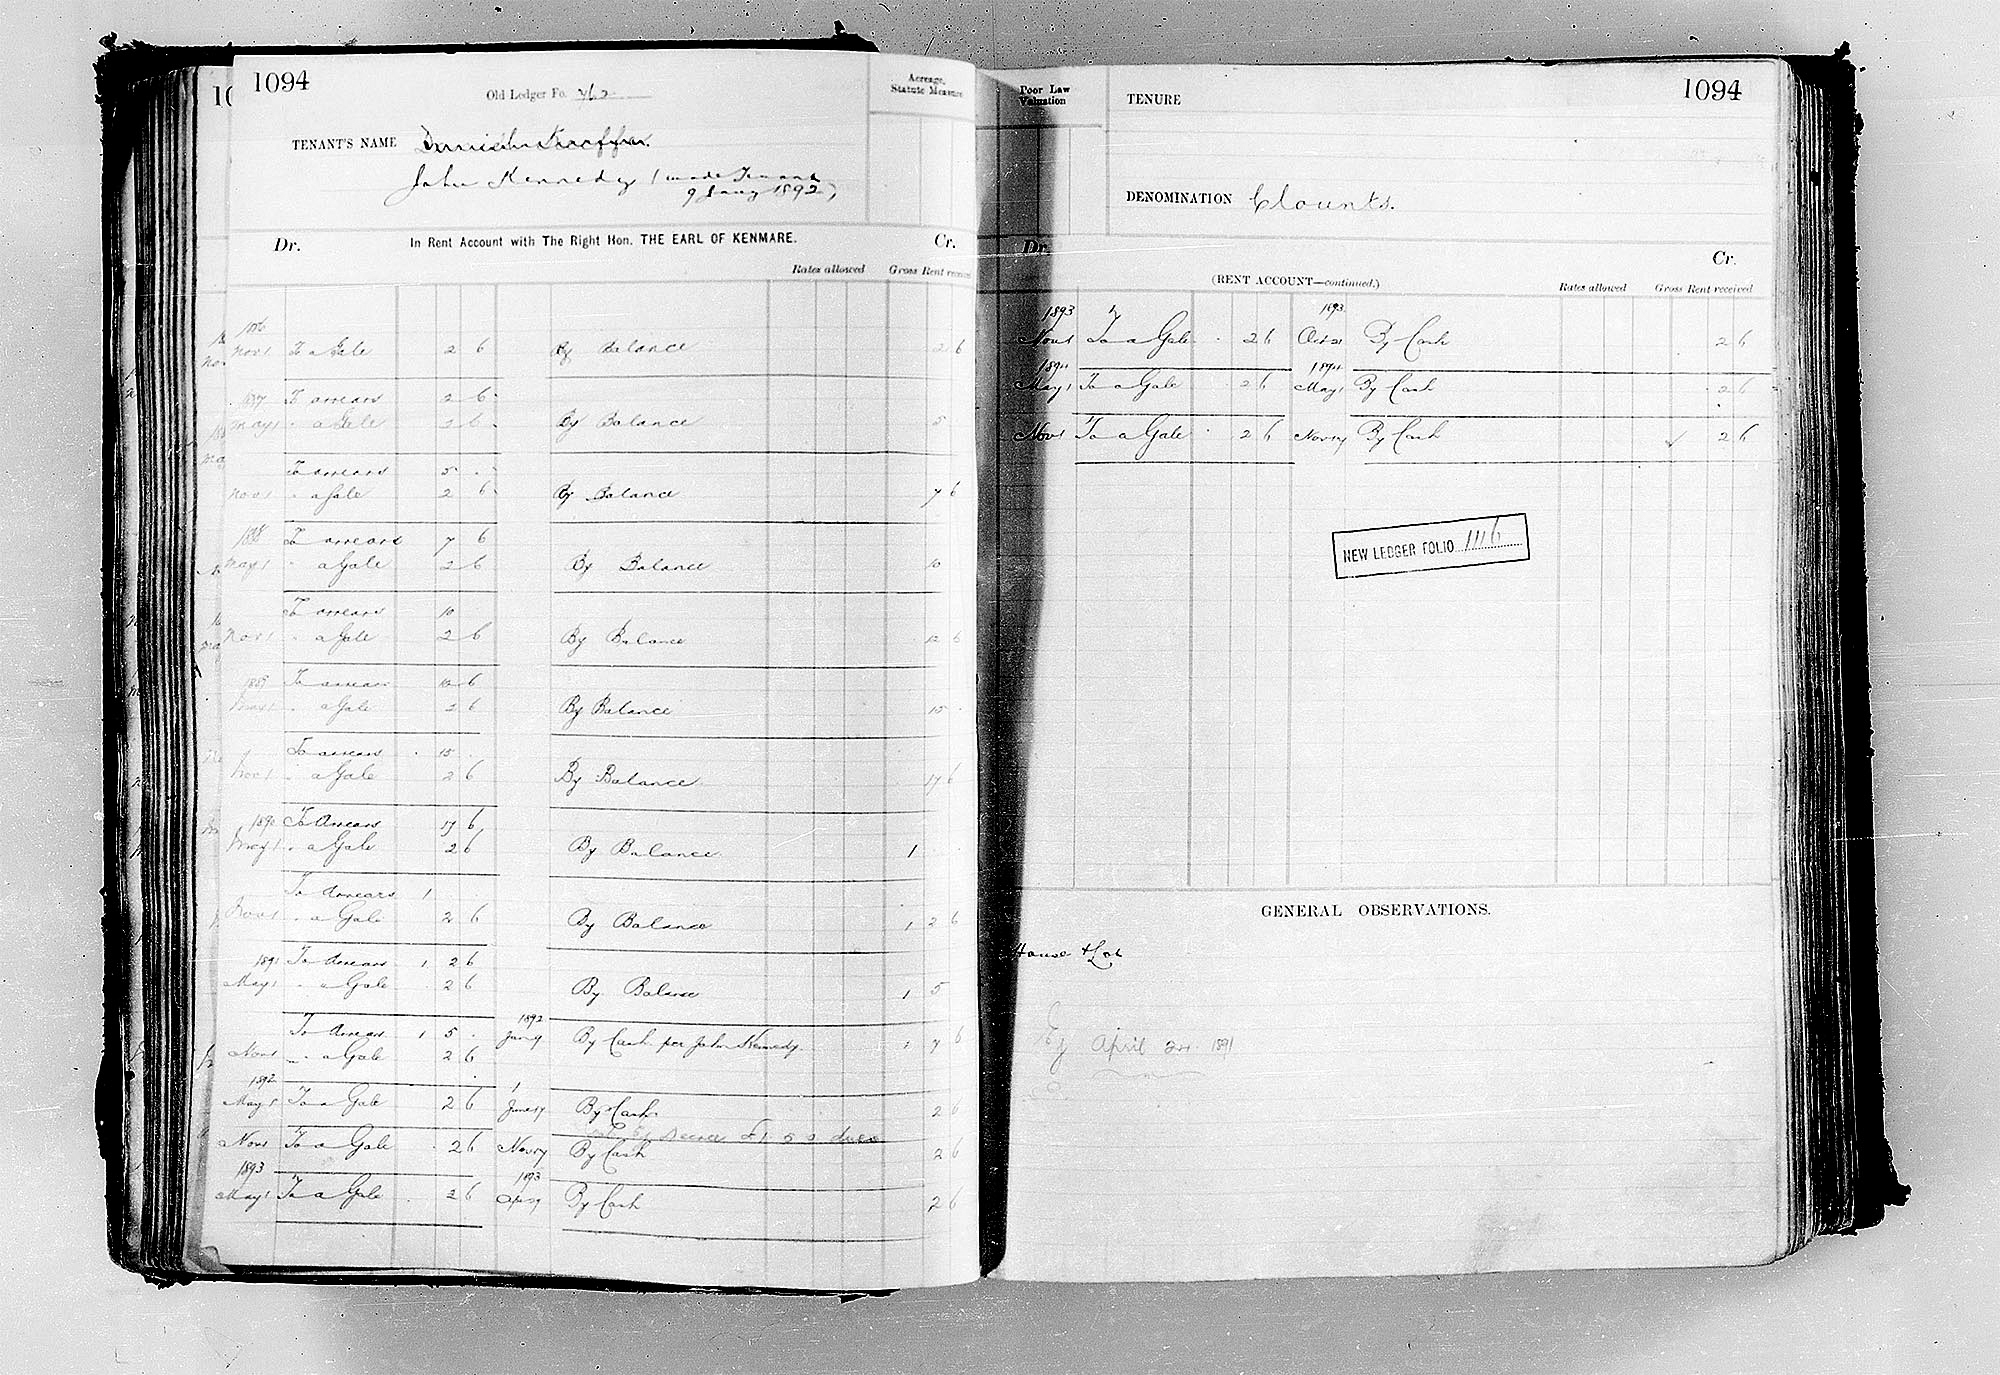 1094
Old Ledger Fo. 762
Acreage, Statute Measure
TENANT'S NAME
John Kennedy (made Tenant
9 Jany 1892)
Dr. In Rent Account with The Right Hon. THE EARL OF KENMARE. Cr.
Rates allowed Gross Rent received
Nov 1 To a Gale 2 6 By Balance 2 6
To arrears 2 6
May 1 " a Gale 2 6 By Balance 5
To arrears 5
Nov 1 " a Gale 2 6 By Balance 7 6
1888 To arrears 7 6
May 1 " a Gale 2 6 By Balance 10
To arrears 10
Nov 1 " a Gale 2 6 By Balance 12 6
1889 To arrears 12 6
May 1 " a Gale 2 6 By Balance 15
To arrears 15
Nov 1 " a Gale 2 6 By Balance 17 6
1890 To Arrears 17 6
May 1 " a Gale 2 6 By Balance 1
To Arrears 1
Nov 1 " a Gale 2 6 By Balance 1 2 6
1891 To Arrears 1 2 6
May 1 " a Gale 2 6 By Balance 1 5
1892
To Arrears 1 5 Jany 9 By Cash per John Kennedy 1 7 6
Nov 1 " a Gale 2 6
1892
May 1 To a Gale 2 6 June 17 By Cash 2 6
Decree £1 5 0 dues
Nov 1 To a Gale 2 6 Nov 17 By Cash 2 6
1893 1893
May 1 To a Gale 2 6 By Cash 2 6
Poor Law Valuation
TENURE
1094
DENOMINATION Clounts.
Dr. Cr.
(RENT ACCOUNT—continued.)
Rates allowed Gross Rent received
1893 1893
Nov 1 To a Gale 2 6 Oct 21 By Cash 2 6
1894 1894
May 1 To a Gale 2 6 May 1 By Cash 2 6
Nov 1 To a Gale 2 6 Nov 17 By Cash 2 6
NEW LEDGER FOLIO 1116
GENERAL OBSERVATIONS.
House & Lot
April 24 1891